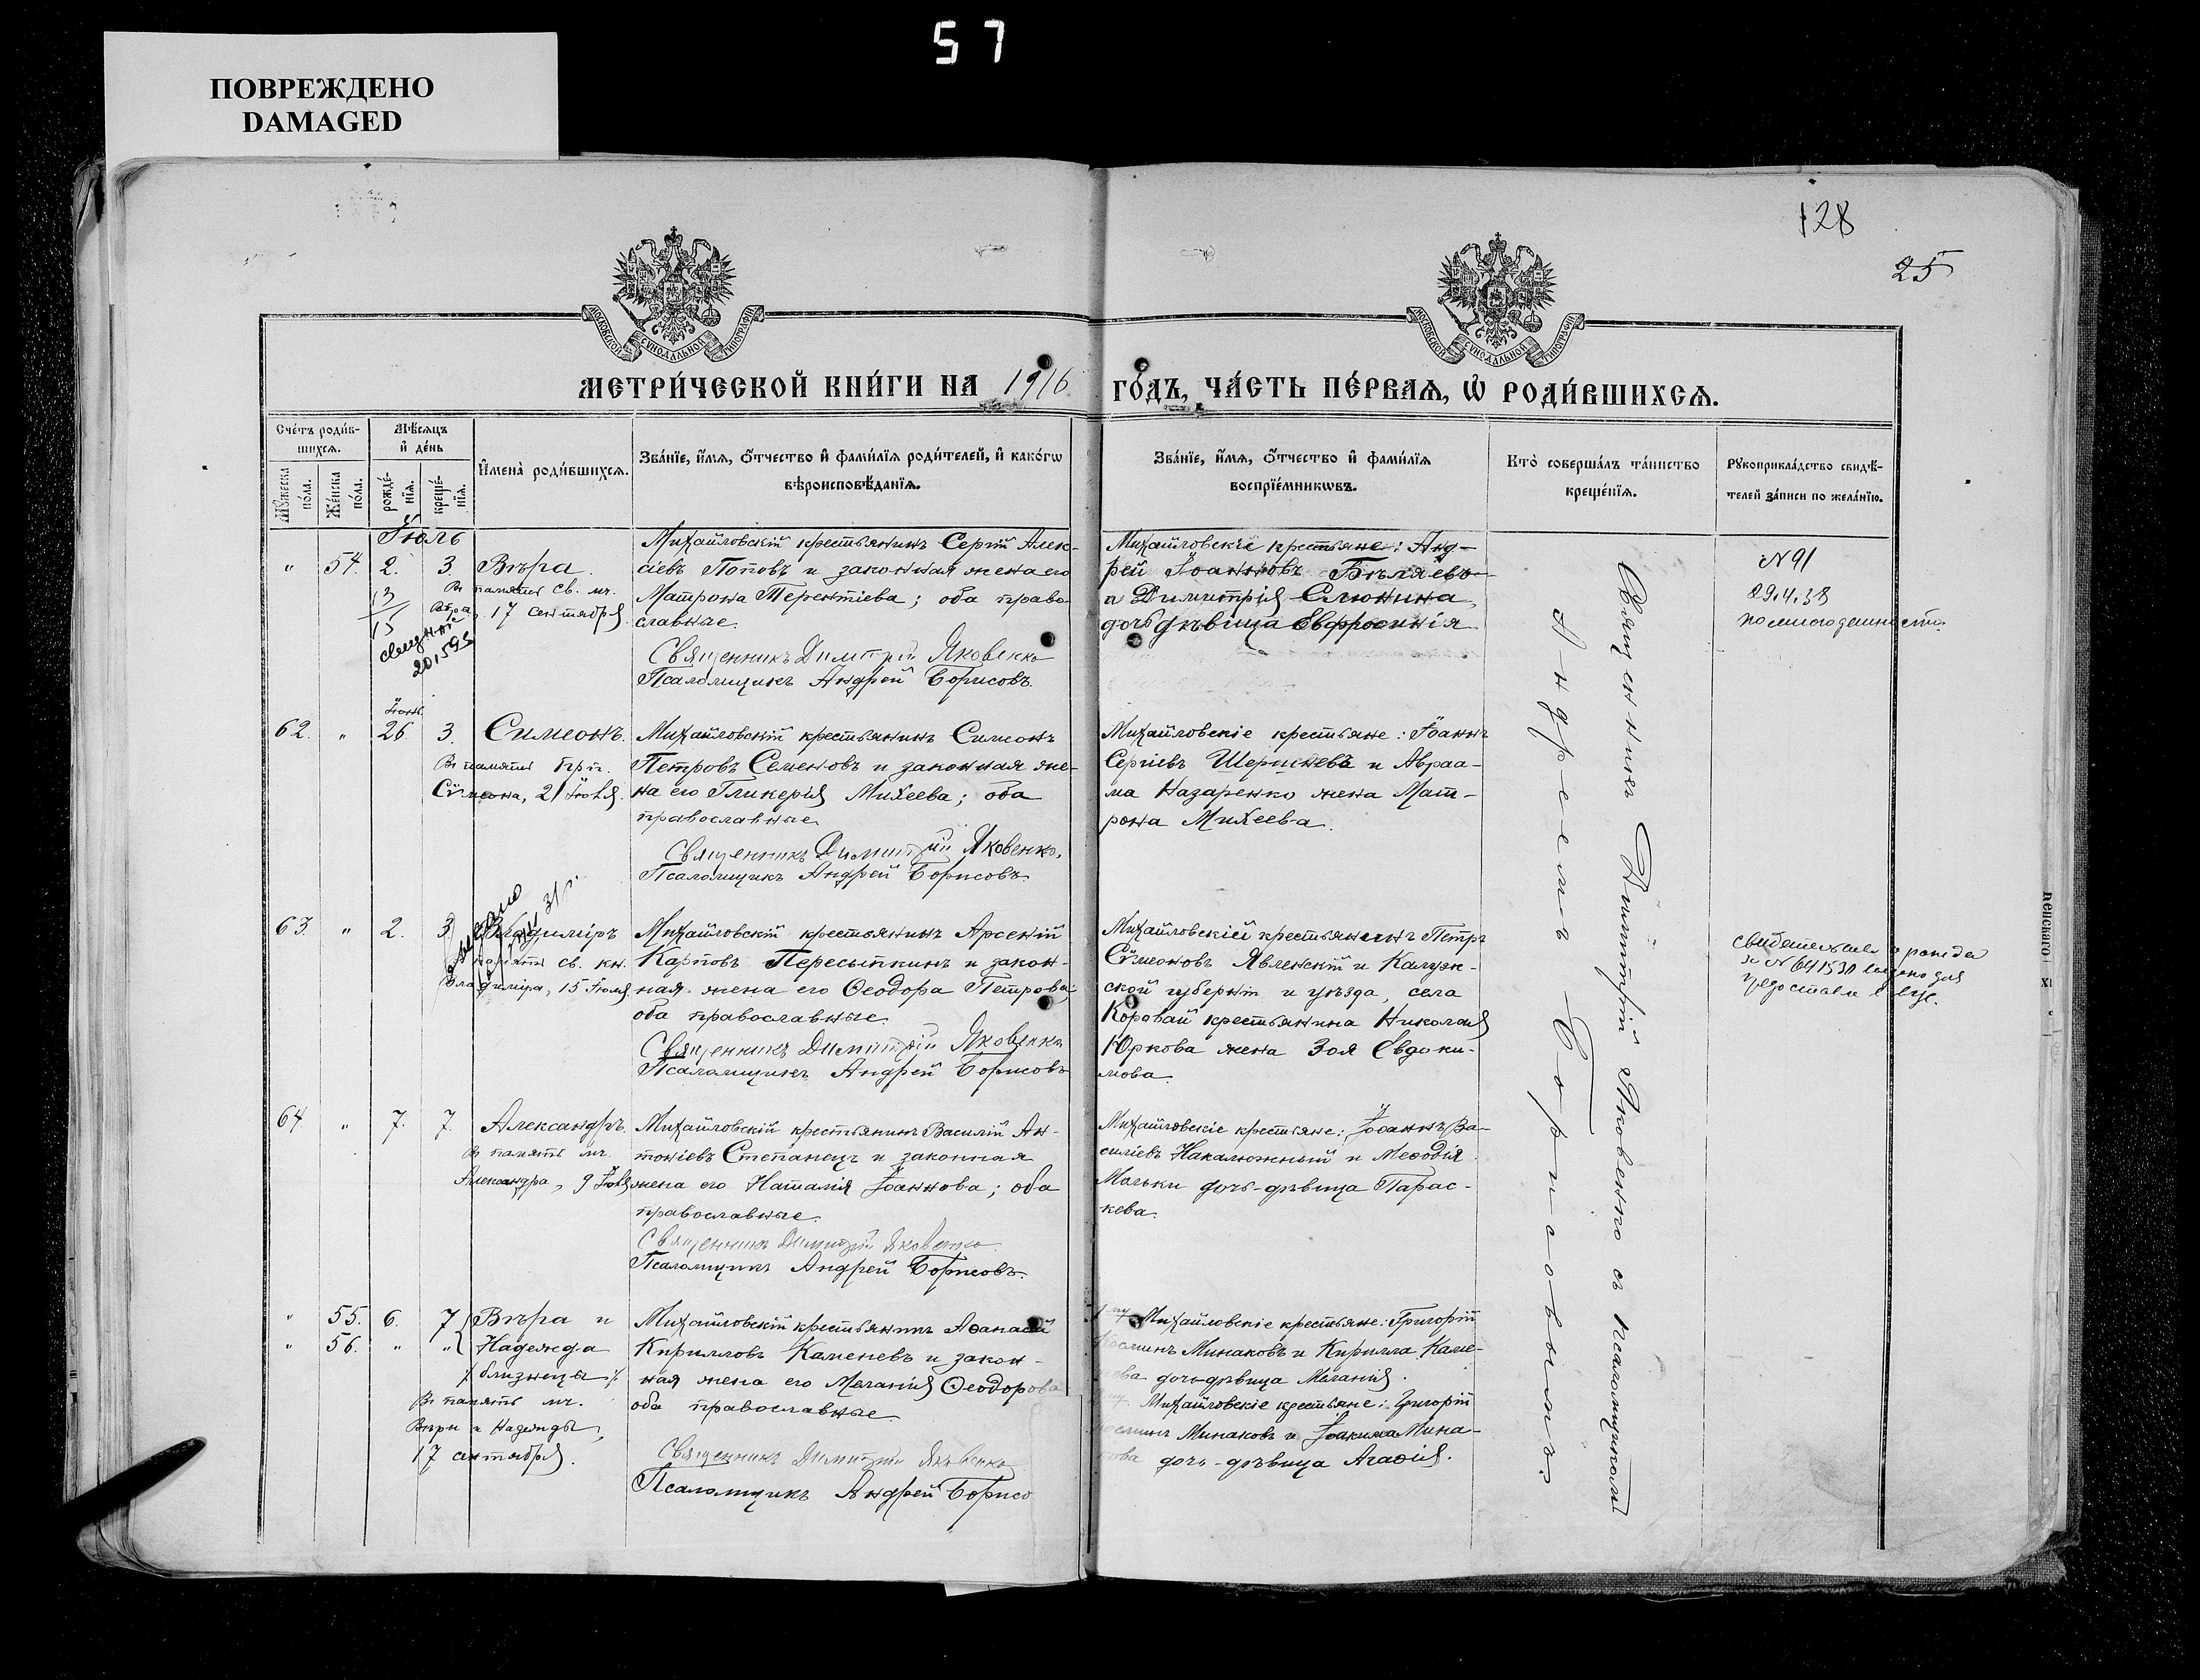 57
ПОВРЕЖДЕНО
DAMAGED
128
25
МОСКОВСКОЙ СѴНОДАЛЬНОЙ ТИПОГРАФІИ
МОСКОВСКОЙ СѴНОДАЛЬНОЙ ТИПОГРАФІИ
МЕТРИ́ЧЕСКОЙ КНИ́ГИ НА 1916 ГО́ДЪ, ЧА́СТЬ ПЕ́РВАѦ, Ѡ҆ РОДИ́ВШИХСѦ.
Сче́тъ роди́в-
шихсѧ.
Мꙋ́жеска по́ла.
Же́нска по́ла.
Мѣ́сѧцъ
и҆ де́нь
рожде́-
нїѧ.
креще́-
нїѧ.
И҆мена̀ роди́вшихсѧ.
Зва́нїе, и҆́мѧ, ѻ҆́тчество и҆ фами́лїѧ роди́телей, и҆ како́гѡ
вѣроисповѣ́данїѧ.
Зва́нїе, и҆́мѧ, ѻ҆́тчество и҆ фами́лїѧ
воспрїе́мникѡвъ.
Кто̀ соверша́лъ та́инство
креще́нїѧ.
Рꙋкоприкла́дство свидѣ́-
телей за́писи по жела́нїю.
Іюль
" 54. 2. 3. Вѣра.
Въ память св. мч.
Вѣра, 17 сентября.
13
15
20,593
Михайловскій крестьянинъ Сергій Алек-
сіевъ Поповъ и законная жена его
Матрона Терентіева; оба право-
славные.
Священникъ Димитрій Яковенко
Псаломщикъ Андрей Борисовъ.
Михайловскіе крестьяне: Анд-
рей Іоанновъ Бѣляевъ
и Димитрія Слюнина
дочь дѣвица Евфросинія
N 91
29.4.38
Іюнь
62. " 26. 3. Симеонъ.
Въ память прп.
Сѵмеона, 21 Іюля.
Михайловскій крестьянинъ Симеонъ
Петровъ Семеновъ и законная же-
на его Гликерія Михеева; оба
православные.
Священникъ Димитрій Яковенко.
Псаломщикъ Андрей Борисовъ.
Михайловскіе крестьяне: Іоаннъ
Сергіевъ Шершневъ и Авраа-
ма Назаренко жена Мат-
рона Михеева.
63. " 2. 3. Владиміръ
память св. кн.
Владиміра, 15 Іюля.
Михайловскій крестьянинъ Арсеній
Карповъ Пересыпкинъ и закон-
ная жена его Ѳеодора Петрова;
оба православные.
Священникъ Димитрій Яковенко
Псаломщикъ Андрей Борисовъ
Михайловскій крестьянинъ Петръ
Сѵмеоновъ Явленскій и Калуж-
ской губерніи и уѣзда, села
Коровай крестьянина Николая
Юркова жена Зоя Евдоки-
мова.
64 " 7. 7. Александръ.
Въ память мч.
Александра, 9 Іюля
Михайловскій крестьянинъ Василій Ан-
тоніевъ Степанецъ и законная
жена его Наталія Іоаннова; оба
православные.
Священникъ Димитрій Яковенко.
Псаломщикъ Андрей Борисовъ.
Михайловскіе крестьяне: Іоаннъ Ва-
силіевъ Накалюжный и Меѳодія
Мальки дочь-дѣвица Парас-
кева.
" 55. 6. 7 Вѣра и
" 56. " " Надежда
близнецы
Въ память мч.
Вѣры и Надежды,
17 сентября.
Михайловскій крестьянинъ Аѳанасій
Кирилловъ Каменевъ и закон-
ная жена его Меланія Ѳеодорова
оба православные
Священникъ Димитрій Яковенко
Псаломщикъ Андрей Борисо
Михайловскіе крестьяне: Григорій
Минаковъ и Кирилла Каме-
нева дочь-дѣвица Меланія.
Михайловскіе крестьяне: Григорій
Минаковъ и Іоакима Мина-
кова дочь-дѣвица Агаѳія.
Священникъ Димитрій Яковенко съ псаломщикомъ
Андреемъ Борисовымъ.